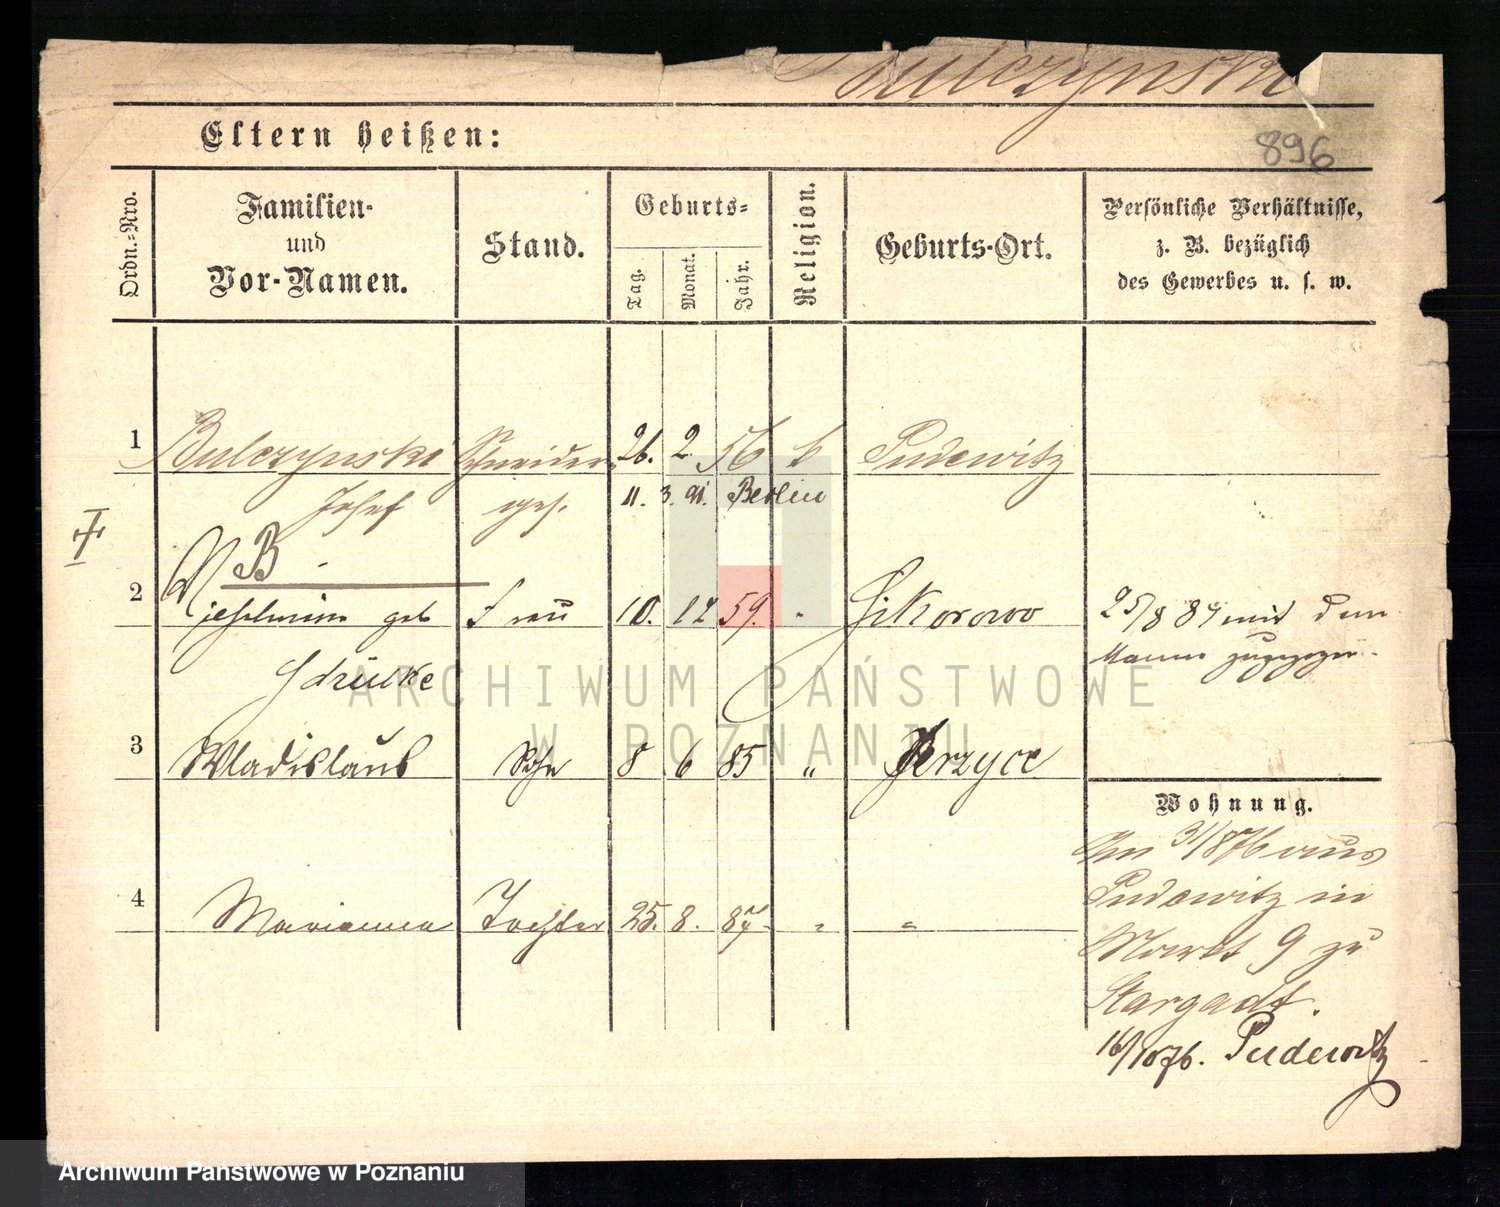 Bulczynski
Eltern heißen:
896
Ordn.-Nro.
Familien-
und
Vor-Namen.
Stand.
Geburts-
Tag.
Monat.
Jahr.
Religion.
Geburts-Ort.
Persönliche Verhältnisse,
z. B. bezüglich
des Gewerbes u. s. w.
1 Bulczynski Schneider 26. 2. 56 k Pudewitz
Josef ges. 11. 3. 91. Berlin
B
2 geb Frau 10. 12 59. " Sikorowo 25/8 84 mit dem
Manne zugezogen.
ARCHIWUM PAŃSTWOWE
W POZNANIU
3 Wladislaus Sohn 8 6 85 " Jerzyce
Wohnung.
Am 31/8 76 aus
4 Marianna Tochter 25. 8. 87. " "
Pudewitz in
Markt 9 zu
Stargadt.
16/10 76. Pudewitz
Archiwum Państwowe w Poznaniu